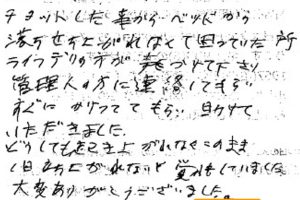 チョットした事からベッドから
落ち立ち上がれなくて困っていた所
ライフデリの方が気づけて下さり
管理人の方に連絡してもらい
すぐにかけつけてもらい助けて
いただきました。
どうしても起き上がれなくこのまま
1日立ち上がれないと覚悟していました
大変ありがとうございました。